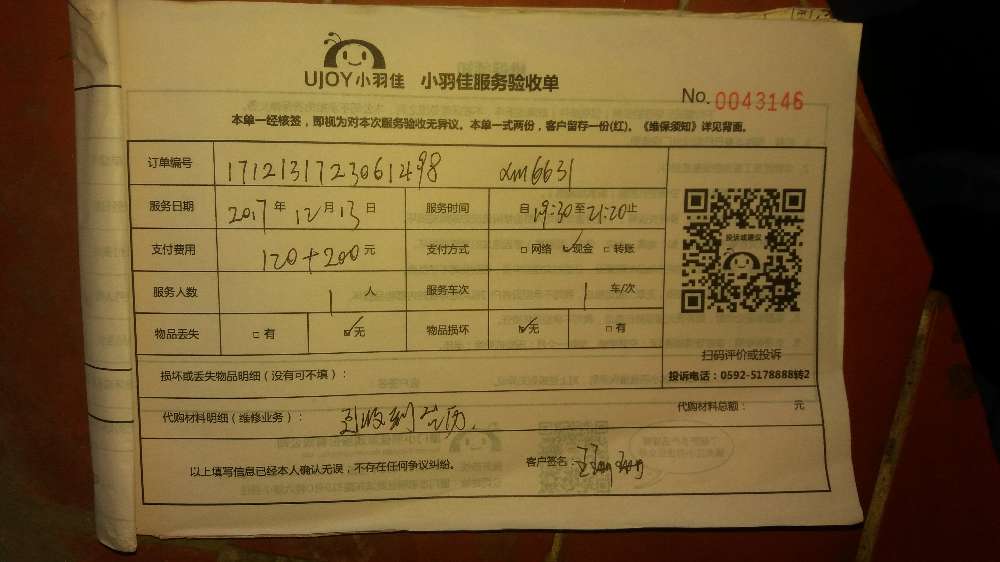 UJOY小羽佳 小羽佳服务验收单
No. 0043146
本单一经核签，即视为对本次服务验收无异议。本单一式两份，客户留存一份(红)。《维保须知》详见背面。
订单编号 1712131723061498 xm6631
服务日期 2017年12月13日 服务时间 自19:30至21:20止
支付费用 120+200元 支付方式 □网络 ☑现金 □转账
服务人数 1人 服务车次 1车/次
物品丢失 □有 ☑无 物品损坏 ☑无 □有
投诉或建议
扫码评价或投诉
投诉电话：0592-5178888转2
损坏或丢失物品明细（没有可不填）：
代购材料明细（维修业务）： 代购材料总额： 元
以上填写信息已经本人确认无误，不存在任何争议纠纷。 客户签名：